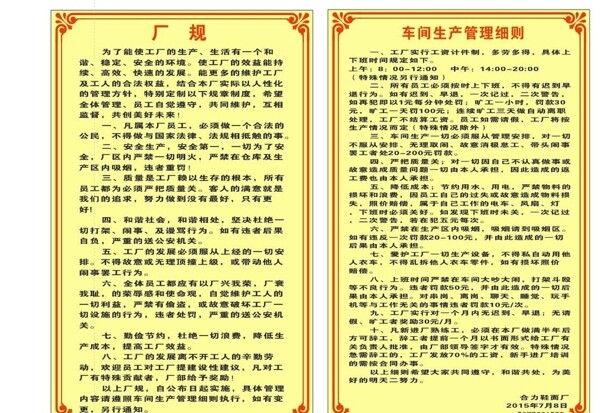 厂 规
为了能使工厂的生产、生活有一个和
谐、稳定、安全的环境。使工厂的效益能持
续、高效、快速的发展。能更多的维护工厂
及工人的合法权益，结合本厂实际以人性化
的管理方针，特别定制以下规章制度，希望
全体管理、员工自觉遵守，共同维护，互相
监督，共创美好未来！
一、凡属本厂员工，必须做一个合法的
公民，不得做与国家法律、法规相抵触的事。
二、安全生产，安全第一，一切为了安
全，厂区内严禁一切明火，严禁在仓库及生
产区内吸烟，违者重罚！
三、质量是工厂赖以生存的根本，所有
员工都为必须严把质量关。客人的满意就是
我们的追求，努力做到没有最好，只有更
好！
四、和谐社会，和谐相处，坚决杜绝一
切打架、闹事、及谩骂行为。如有违者后果
自负，严重的送公安机关。
五、工厂的发展必须服从上级的一切安
排。不得故意或无理顶撞上级，或带动他人
闹事罢工行为。
六、全体员工都应有以厂兴我荣，厂衰
我耻，的荣辱感和使命观，自觉维护工人的
一切利益，严禁有偷盗，或故意破坏工厂一
切设施的行为，违者处罚，严重的送公安机
关。
七、勤俭节约，杜绝一切浪费，降低生
产成本，提高工厂效益。
八、工厂的发展离不开工人的辛勤劳
动，欢迎员工对工厂提建设性建议，凡对工
厂有特殊贡献者，厂部给予奖励！
以上厂规，自公布日起实施，具体管理
内容请遵照车间生产管理细则执行，如有变
更，另行通知。
车间生产管理细则
一、工厂实行工资计件制，多劳多得，具体上
下班时间规定如下。
上午：8：00-12:00 中午：14:00-20:00
（特殊情况另行通知）
二、所有员工必须按时上下班，不得有迟到早
退行为。如有迟到、早退，一次记过，二次警告，
如再犯即以1元每分钟处罚；旷工一小时，罚款30
元，旷工一天罚100元；连续旷工三天做自动离职
处理，工厂不结算工资。员工如需请假，工厂将按
生产情况而定（特殊情况除外）
三、车间生产一切必须服从管理安排，对一切
不服从安排、无理取闹、故意消极怠工、带头闹事
罢工者处20-200元罚款。
四、严把质量关；对一切因自己不认真做事或
故意造成质量问题一切由本人承担，因此造成的返
工费也由本人承担。
五、降低成本；节约用水、用电，严禁物料的
损坏和浪费，因员工自己的过失或故意造成物料损
失，照价赔偿，属于自己工作的电车、风扇、灯
，下班时必须关好。如发现下班时未关，一次记过
，二次警告，若在犯五元每次。
六、严禁在生产区内吸烟，吸烟请到吸烟区。
如有违反一次罚款20-100元，并由此造成的一切
后果由本人承担。
七、爱护工厂一切生产设备，不得私自动用他
人衣车，不得乱拆他人衣车零件，如有损坏照价
赔偿。
八、上班时间严禁在车间大吵大闹，打架斗殴
等不良行为。违者罚款50元，并由此造成的一切后
果由本人承担。对串岗、离岗、聊天、睡觉、玩手
机等与工作无关的事情违者罚款10元/次。
九、工厂实行对一个月内无迟到、早退，无请
假、旷工者奖励30元/月。
十、凡新进厂熟练工，必须在本厂做满半年后
方可辞工，辞工者提前一个月以书面形式给工厂有
关负责人批准，由厂部领导签字才有效，特殊情况
急需辞工的，工厂发放70%的工资，新手进厂培训的
需按合同办事。
以上细则希望大家共同遵守，和谐共处，为美
好的明天二努力。
合力鞋面厂
2015年7月8日